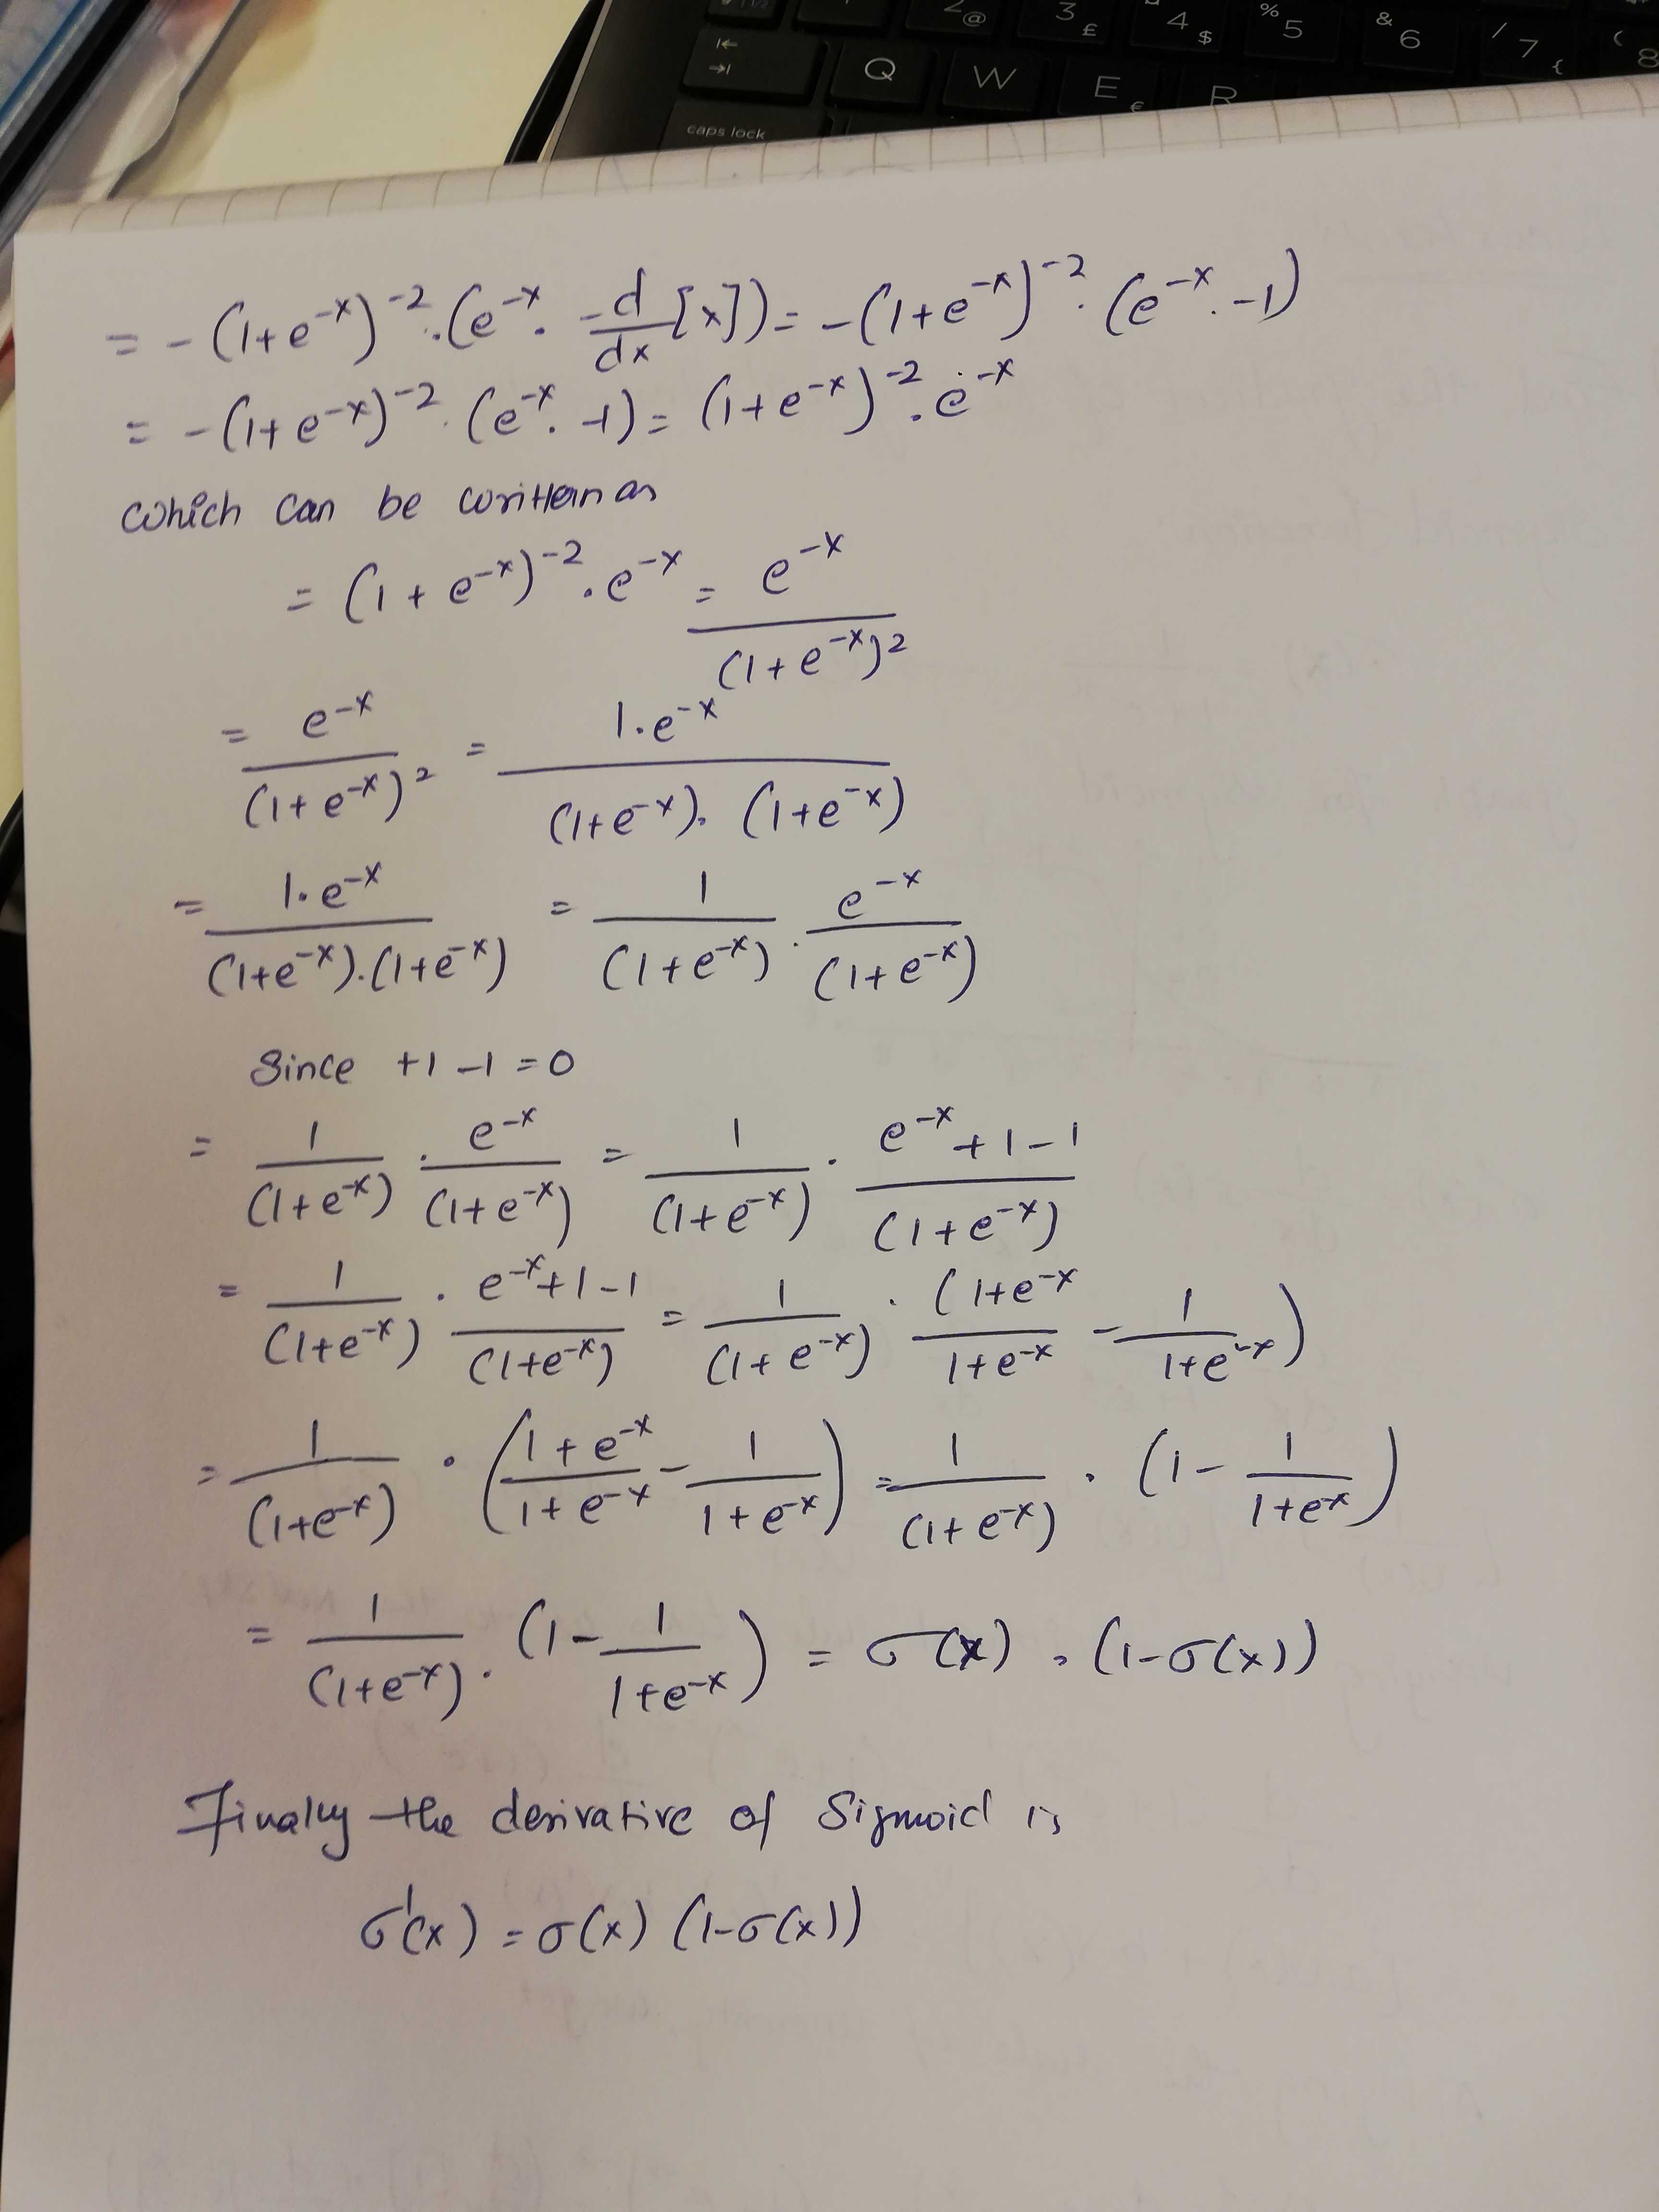 2 @ 3 £ 4 $ % 5 & 6 / 7 { ( 8
Q W E € R
caps lock
= -(1+e^-x)^-2 · (e^-x · -d/dx [x]) = -(1+e^-x)^-2 · (e^-x · -1)
= -(1+e^-x)^-2 · (e^-x · -1) = (1+e^-x)^-2 · e^-x
which can be written as
= (1+e^-x)^-2 · e^-x = e^-x / (1+e^-x)^2
= e^-x / (1+e^-x)^2 = 1·e^-x / (1+e^-x) · (1+e^-x)
= 1·e^-x / (1+e^-x)·(1+e^-x) = 1/(1+e^-x) · e^-x/(1+e^-x)
Since +1-1=0
= 1/(1+e^-x) · e^-x/(1+e^-x) = 1/(1+e^-x) · e^-x+1-1/(1+e^-x)
= 1/(1+e^-x) · e^-x+1-1/(1+e^-x) = 1/(1+e^-x) · (1+e^-x/1+e^-x - 1/1+e^-x)
= 1/(1+e^-x) · (1+e^-x/1+e^-x - 1/1+e^-x) = 1/(1+e^-x) · (1 - 1/1+e^-x)
= 1/(1+e^-x) · (1 - 1/1+e^-x) = σ(x) · (1-σ(x))
Finally the derivative of Sigmoid is
σ'(x) = σ(x) (1-σ(x))